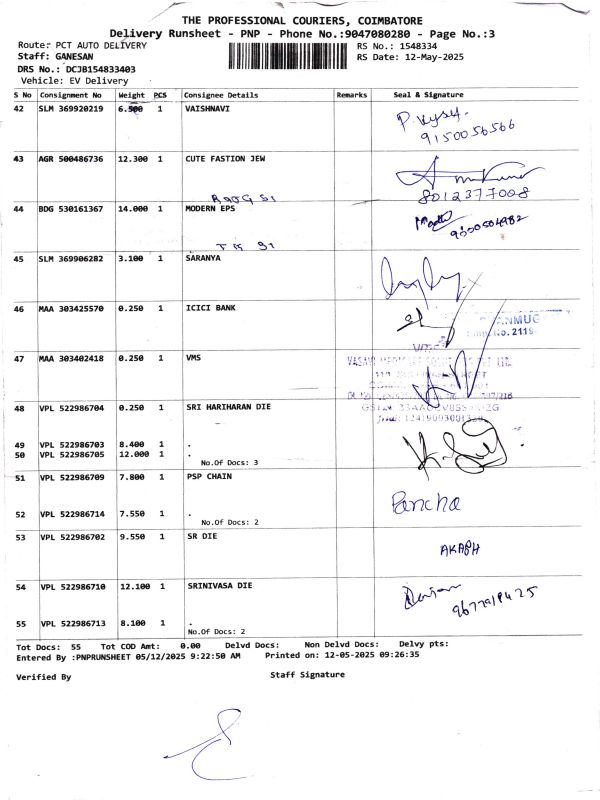 THE PROFESSIONAL COURIERS, COIMBATORE
Delivery Runsheet - PNP - Phone No.:9047080280 - Page No.:3
Route: PCT AUTO DELIVERY
RS No.: 1548334
Staff: GANESAN
RS Date: 12-May-2025
DRS No.: DCJB154833403
Vehicle: EV Delivery
S No Consignment No Weight PCS Consignee Details Remarks Seal & Signature
42 SLM 369920219 6.500 1 VAISHNAVI
9150056566
43 AGR 500486736 12.300 1 CUTE FASTION JEW
8012377008
44 BDG 530161367 14.000 1 MODERN EPS
9000504982
45 SLM 369906282 3.100 1 SARANYA
46 MAA 303425570 0.250 1 ICICI BANK
47 MAA 303402418 0.250 1 VMS
48 VPL 522986704 0.250 1 SRI HARIHARAN DIE
49 VPL 522986703 8.400 1 .
50 VPL 522986705 12.000 1 .
No.Of Docs: 3
51 VPL 522986709 7.800 1 PSP CHAIN
Pancha
52 VPL 522986714 7.550 1 .
No.Of Docs: 2
53 VPL 522986702 9.550 1 SR DIE
AKASH
54 VPL 522986710 12.100 1 SRINIVASA DIE
55 VPL 522986713 8.100 1 .
No.Of Docs: 2
Tot Docs: 55 Tot COD Amt: 0.00 Delvd Docs: Non Delvd Docs: Delvy pts:
Entered By :PNPRUNSHEET 05/12/2025 9:22:50 AM Printed on: 12-05-2025 09:26:35
Verified By Staff Signature